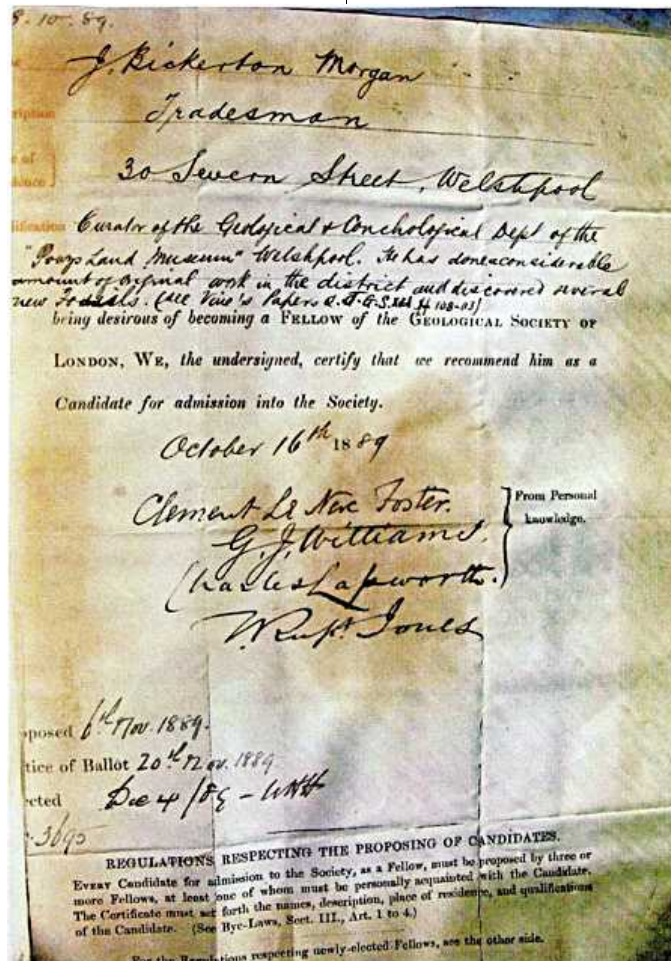 8.10.89.
J. Bickerton Morgan
ription
Tradesman
e of
ence
30 Severn Street, Welshpool
lification Curator of the Geological & Conchological Dept of the
"Powys Land Museum" Welshpool. He has done a considerable
amount of original work in the district and discovered several
new Fossils. (see Vine's Papers Q.J.G.S. 108-03)
being desirous of becoming a FELLOW of the GEOLOGICAL SOCIETY OF
LONDON, WE, the undersigned, certify that we recommend him as a
Candidate for admission into the Society.
October 16th 1889
Clement Le Neve Foster.
From Personal
knowledge.
G. J. Williams.
Charles Lapworth.
T. Rupt. Jones
oposed 6th Nov. 1889.
tice of Ballot 20th Nov. 1889
cted Dec 4/89 - WHH
3695
REGULATIONS RESPECTING THE PROPOSING OF CANDIDATES.
EVERY Candidate for admission to the Society, as a Fellow, must be proposed by three or
more Fellows, at least one of whom must be personally acquainted with the Candidate.
The Certificate must set forth the names, description, place of residence, and qualifications
of the Candidate. (See Bye-Laws, Sect. III., Art. 1 to 4.)
For the Regulations respecting newly-elected Fellows, see the other side.